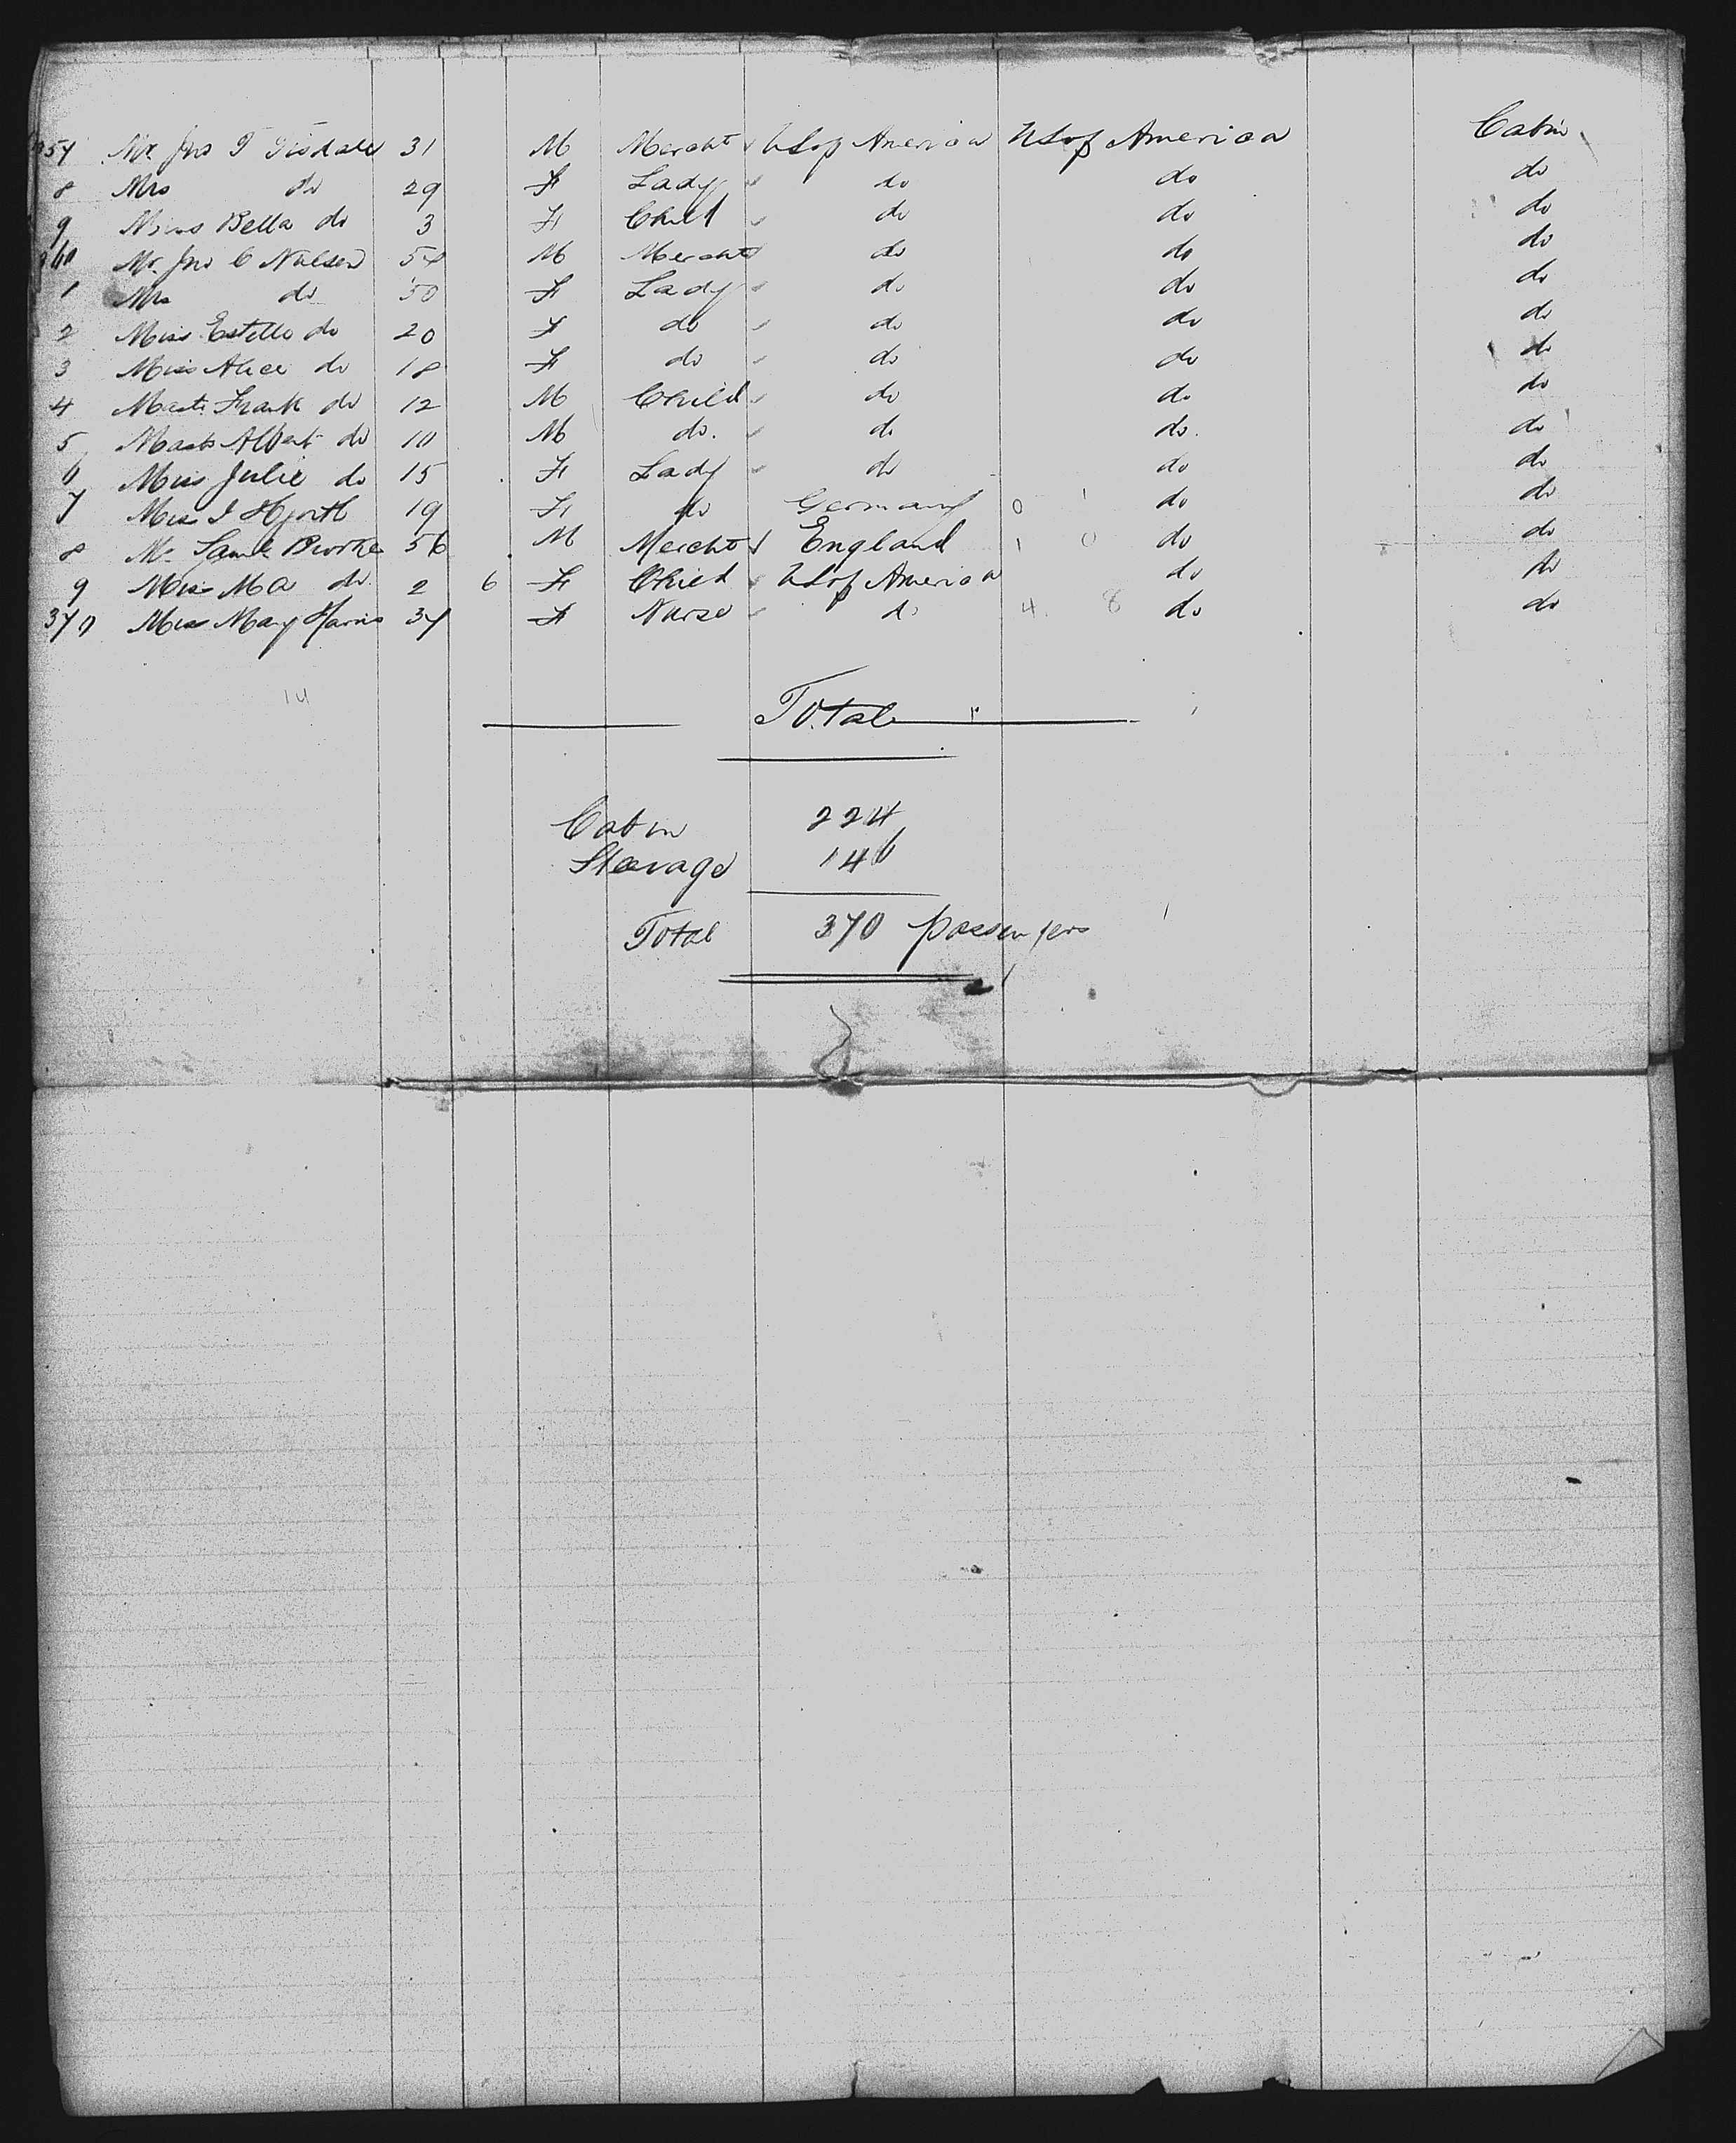 357 Mr. Jno T Tisdale 31 M Mercht U S of America U S of America Cabin
8 Mrs do 29 F Lady do do do
9 Miss Bella do 3 F Child do do do
360 Mr. Jno C Nulsen 54 M Mercht do do do
1 Mrs do 50 F Lady do do do
2 Miss Estelle do 20 F do do do do
3 Miss Alice do 18 F do do do do
4 Mast. Frank do 12 M Child do do do
5 Mast Albert do 10 M do. do do. do
6 Miss Julie do 15 F Lady do do do
7 Miss I Hjorth 19 F do Germany 0 1 do do
8 Mr Saml Brooke 56 M Mercht England 1 0 do do
9 Miss M A do. 2 6 F Child U S of America do do
370 Miss Mary Harris 37 F Nurse do 4. 8 do do
14
Total
Cabin 224
Steerage 146
Total 370 passengers